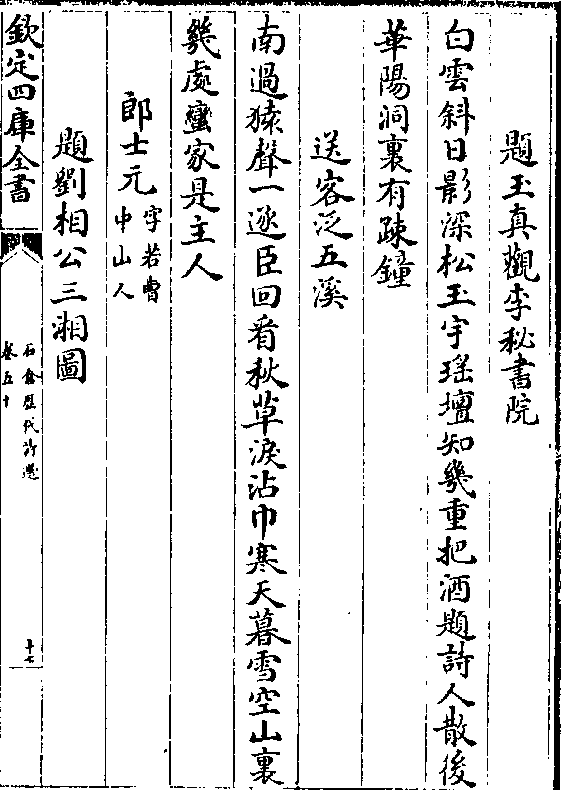 題玉真觀李秘書院
白雲斜日影深松玉宇瑤壇知幾重把酒題詩人散後
華陽洞裏有疎鐘
送客泛五溪
南過猿聲一逐臣回看秋草淚沾巾寒天暮雪空山裏
幾處蠻家是主人
郎士元字若曹
中山人
題劉相公三湘圖
欽定四庫全書
石倉歷代詩選
卷五十
十七